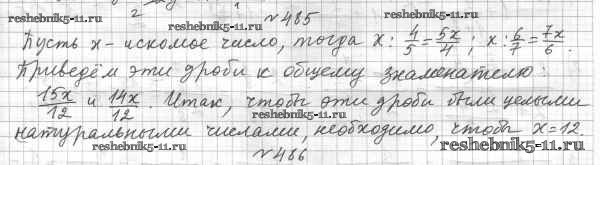 №485
reshebnik5-11.ru reshebnik5-11.ru
Пусть x - искомое число, тогда x : 4/5 = 5x/4 ; x : 6/7 = 7x/6 .
Приведём эти дроби к общему знаменателю:
15x/12 и 14x/12 . Итак, чтобы эти дроби были целыми
натуральными числами, необходимо, чтобы x = 12.
reshebnik5-11.ru reshebnik5-11.ru
№486